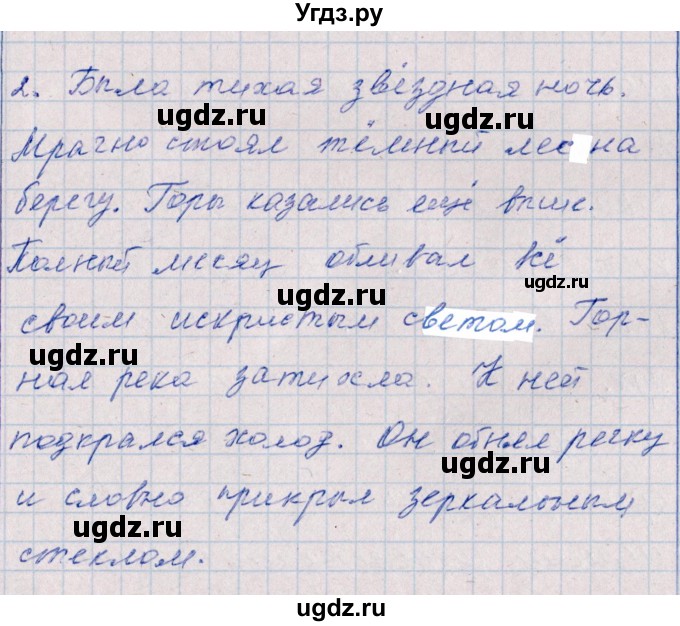 Угдз.ру
2. Была тихая звёздная ночь.
ugdz.ru ugdz.ru
Мрачно стоял тёмный лес на
берегу. Горы казались ещё выше.
ugdz.ru
Полный месяц обливал всё
ugdz.ru
ugdz.ru
своим искристым светом. Гор-
ugdz.ru
ная река затихла. К ней
подкрался холод. Он обнял речку
ugdz.ru
и словно прикрыл зеркальным
ugdz.ru
стеклом.
ugdz.ru